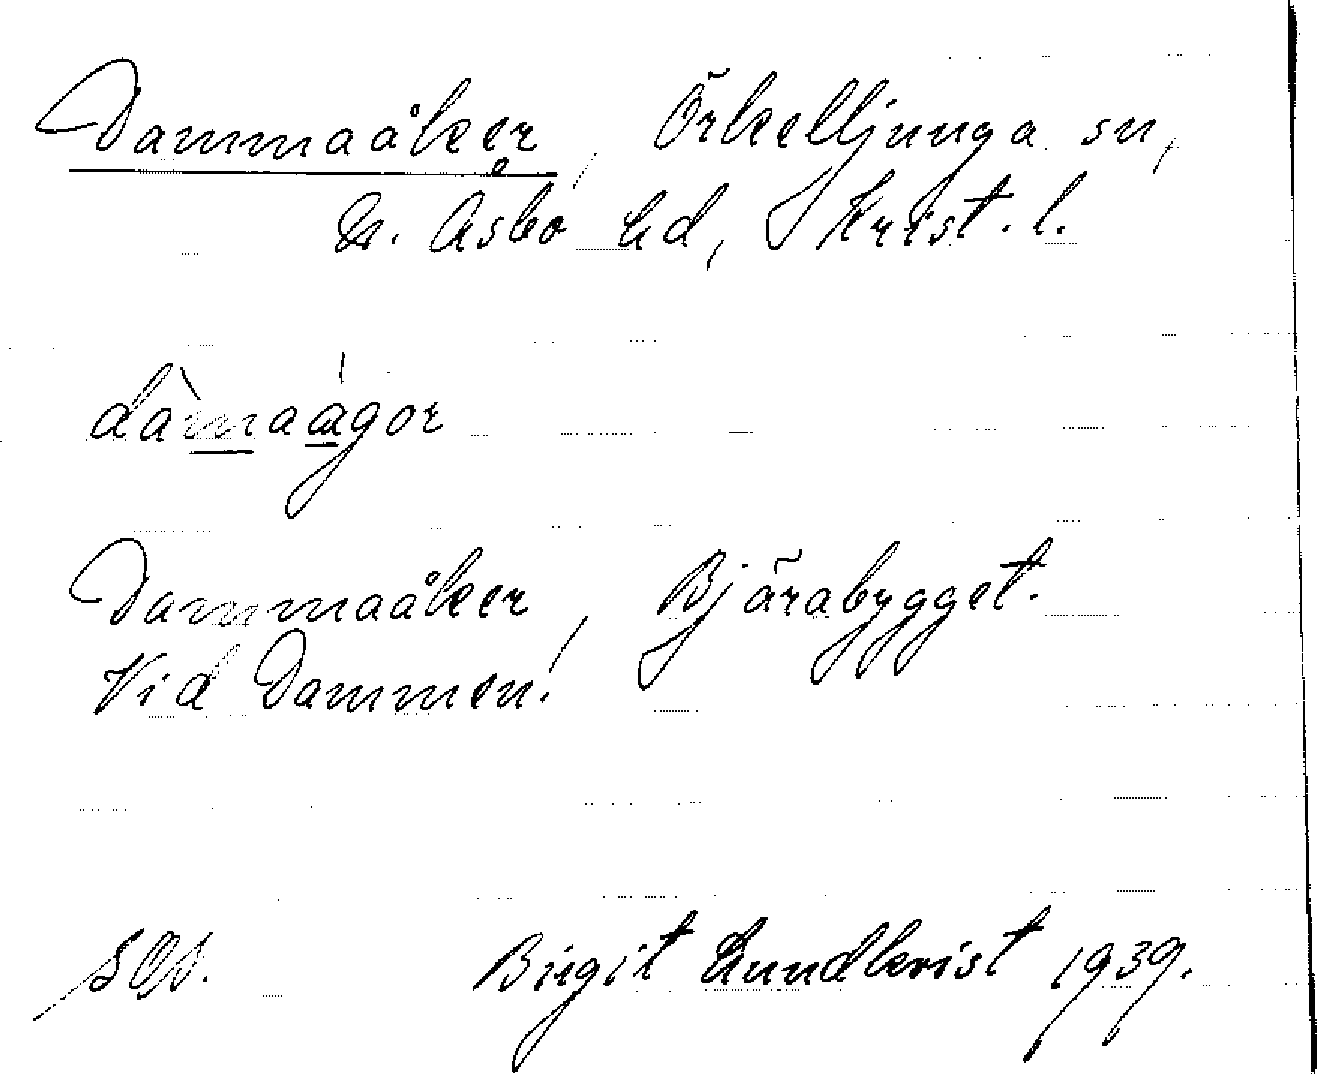 Dammaåker, Örkelljunga sn,
N. Åsbo hd, Krist. l.
dàmaágor
Dammaåker, Bjärabygget.
Vid Dammen!
Birgit Lundkvist 1939.